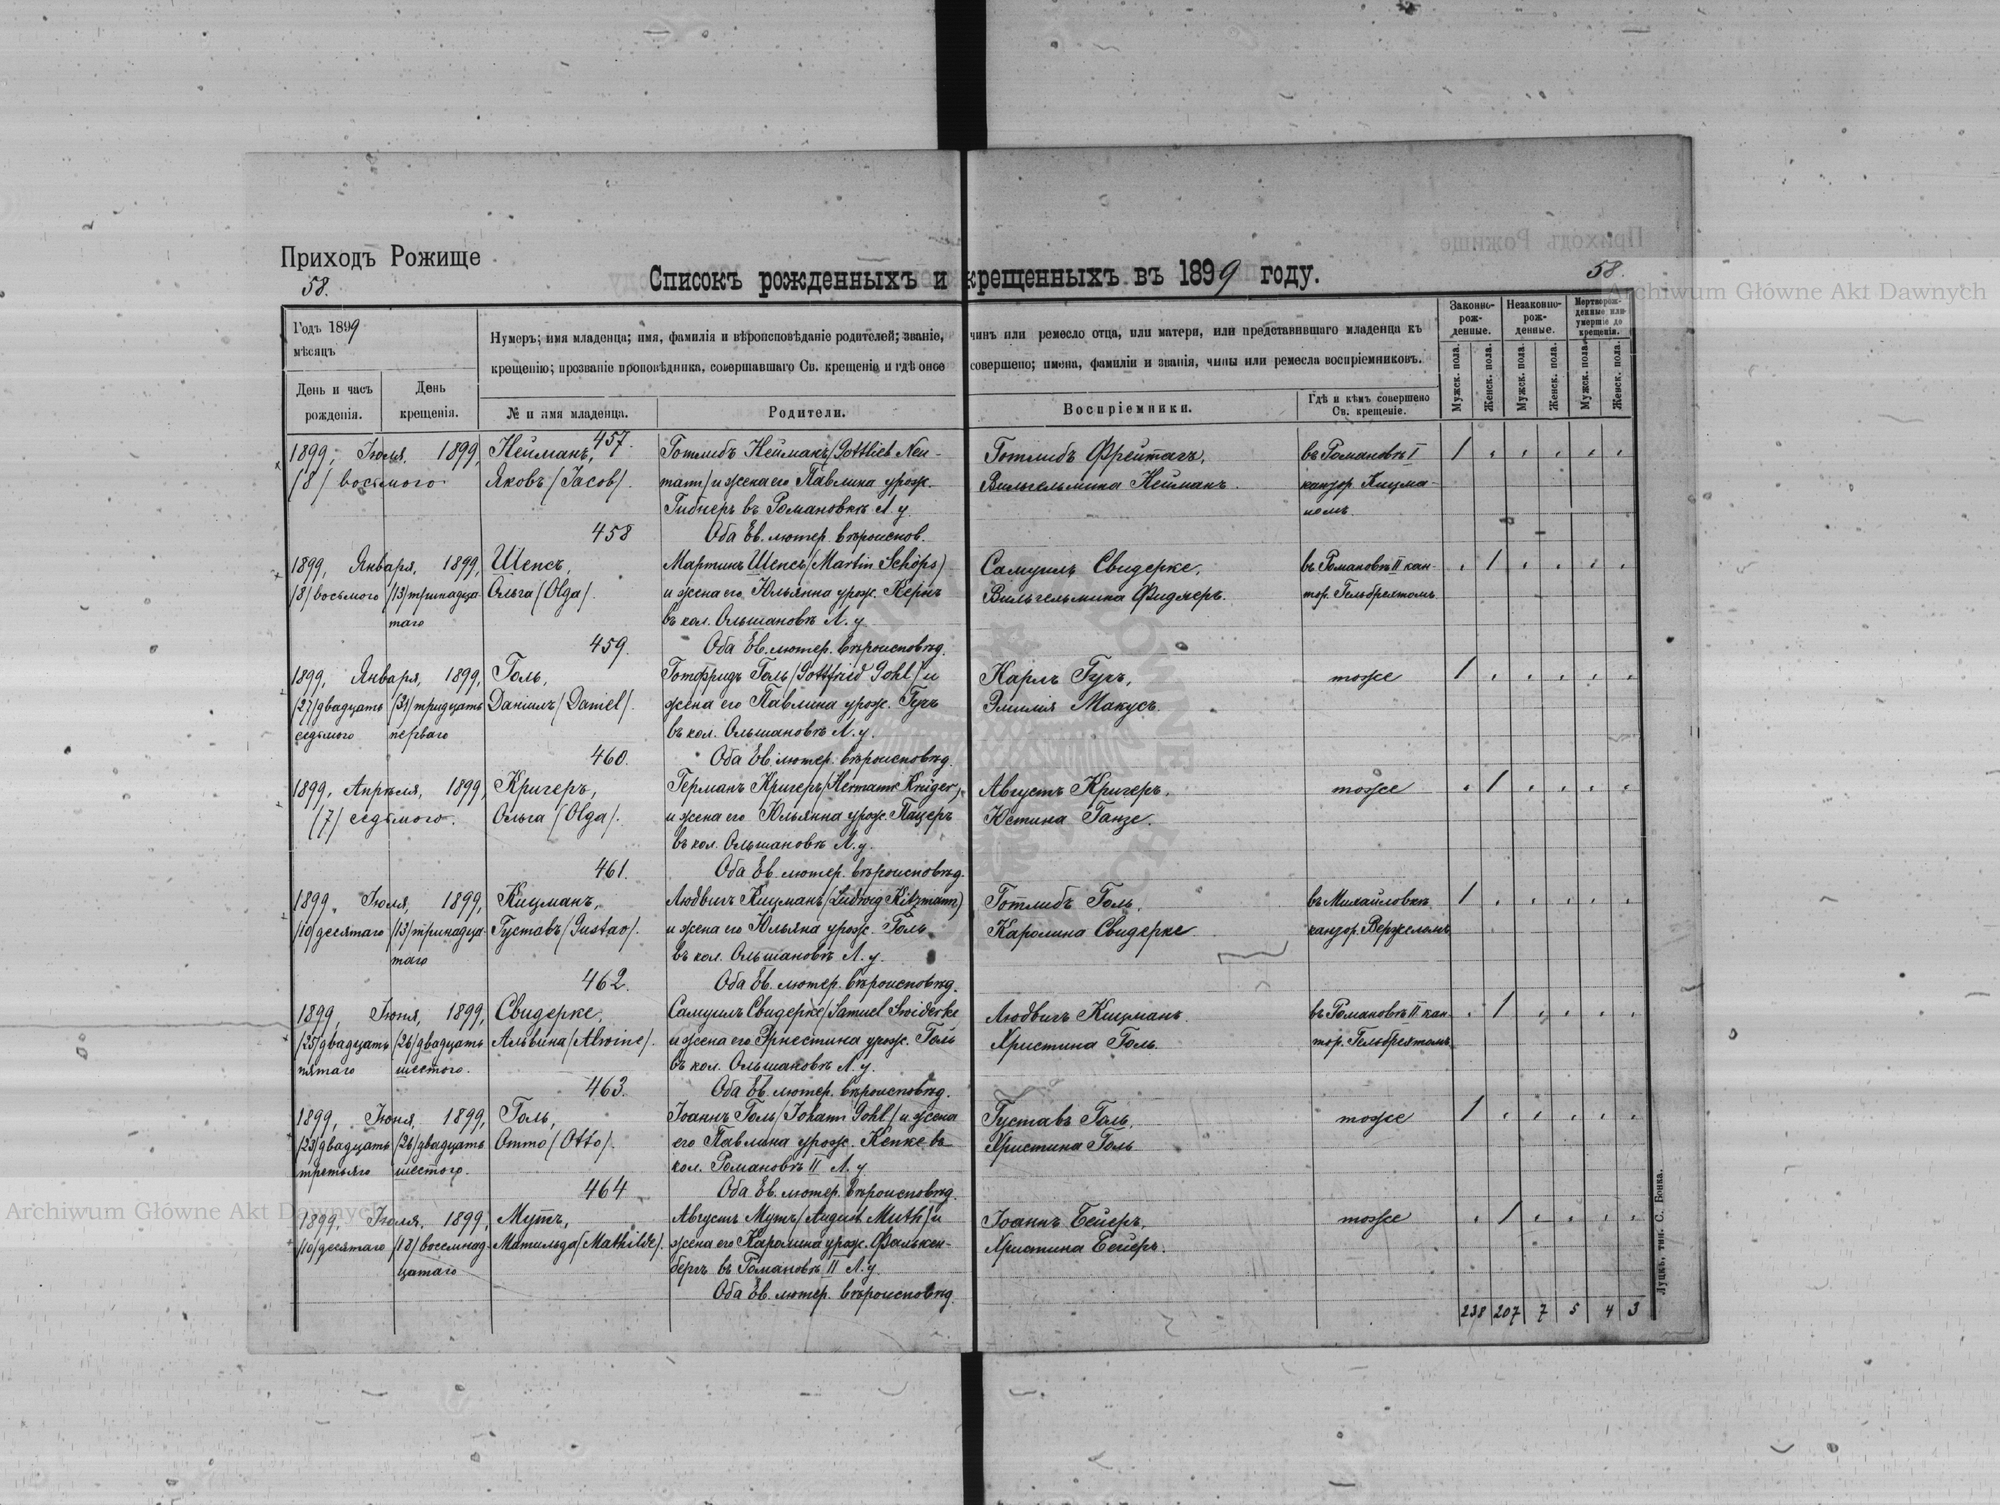 Приходъ Рожище
58.
58.
Списокъ рожденныхъ и крещенныхъ въ 1899 году.
Archiwum Główne Akt Dawnych
Годъ 1899
мѣсяцъ
День и часъ рожденія.
День крещенія.
Нумеръ; имя младенца; имя, фамилія и вѣроисповѣданіе родителей; званіе, чинъ или ремесло отца, или матери, или представившаго младенца къ
крещенію; прозваніе проповѣдника, совершавшаго Св. крещеніе и гдѣ оное совершено; имена, фамиліи и званія, чины или ремесла воспріемниковъ.
№ и имя младенца.
Родители.
Воспріемники.
Гдѣ и кѣмъ совершено Св. крещеніе.
Законно-рож-денные.
Незаконно-рож-денные.
Мертворож-денные или умершіе до крещенія.
Мужск. пола.
Женск. пола.
Мужск. пола.
Женск. пола.
Мужск. пола.
Женск. пола.
457.
1899, Іюля, 1899, Нейманъ, Готлибъ Нейманъ/Gottlieb Neu- Готлибъ Фрейтагъ, въ Романовкѣ I 1 . . . . .
/8/ восьмого Яковъ/Jacob/. mann/ и жена его Павлина урож. Вильгельмина Нейманъ. кантор. Кицма-
Гибнеръ въ Романовкѣ Л. у. номъ.
458 Оба Ев. лютер. вѣроиспов.
1899, Января, 1899, Шепсъ, Мартинъ Шепсъ/Martin Schöps) Самуилъ Свидерке, въ Романовкѣ II кан- . 1 . . . .
/8/ восьмого /13/ тринадца- Ольга/Olga/. и жена его Юльянна урож. Кернъ Вильгельмина Фидлеръ. тор. Гельбрехтомъ
таго въ кол. Ольшановкѣ Л. у.
459. Оба Ев. лютер. вѣроисповѣд.
1899, Января, 1899, Голь, Готфридъ Голь/Gottfried Gohl/ и Карлъ Гучъ, тоже 1 . . . . .
/27/ двадцать /31/ тридцать Даніилъ/Daniel/. жена его Павлина урож. Гучъ Эмилія Макусъ.
седьмого перваго въ кол. Ольшановкѣ Л. у.
460. Оба Ев. лютер. вѣроисповѣд.
1899, Апрѣля, 1899, Кригеръ, Германъ Кригеръ/Hermann Krüger) Августъ Кригеръ, тоже . 1 . . . .
/7/ седьмого. Ольга/Olga/. и жена его Юльянна урож. Пацеръ Юстина Ганзе.
въ кол. Ольшановкѣ Л. у.
461. Оба Ев. лютер. вѣроисповѣд.
1899, Іюля, 1899, Кицманъ, Людвигъ Кицманъ/Ludwig Kitzmann) Готлибъ Голь, въ Михайловкѣ 1 . . . . .
/10/ десятаго /13/ тринадца- Густавъ/Gustav/. и жена его Юльяна урож. Голь Каролина Свидерке кантор.
таго въ кол. Ольшановкѣ Л. у.
462. Оба Ев. лютер. вѣроисповѣд.
1899, Іюня, 1899, Свидерке, Самуилъ Свидерке/Samuel Swiderke Людвигъ Кицманъ. въ Романовкѣ II кан- . 1 . . . .
/25/ двадцать /26/ двадцать Альвина/Alwine/. и жена его Эрнестина урож. Голь Христина Голь. тор. Гельбрехтомъ
пятаго шестого. въ кол. Ольшановкѣ Л. у.
463. Оба Ев. лютер. вѣроисповѣд.
1899, Іюня, 1899, Голь, Іоаннъ Голь/Johann Gohl/ и жена Густавъ Голь, тоже 1 . . . . .
/23/ двадцать /26/ двадцать Отто/Otto/. его Павлина урож. Кепке въ Христина Голь
третьяго шестого. кол. Романовкѣ II Л. у.
464 Оба Ев. лютер. вѣроисповѣд.
1899, Іюля, 1899, Мутъ, Августъ Мутъ/August Muth/ и Іоаннъ Бейеръ, тоже . 1 . . . .
/10/ десятаго /18/ восемнад- Матильда/Mathilde/. жена его Каролина урож. Фалькен- Христина Бейеръ.
цатаго бергъ въ Романовкѣ II Л. у.
Оба Ев. лютер. вѣроисповѣд.
238 207 7 5 4 3
Луцкъ, тип. С. Бонка.
Archiwum Główne Akt Dawnych